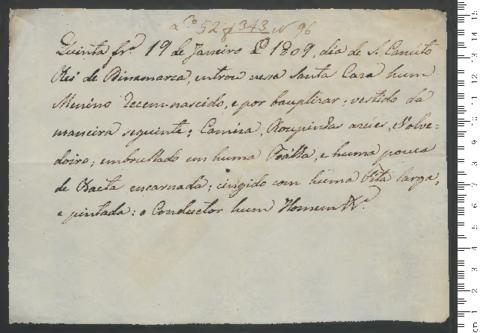 Lº 52 f 343 N 96
Quinta frª 19 de Janeiro D 1809, dia de S. Canuto
Rei de Dinamarca, entrou nesa Santa Casa hum
Menino recem-nascido, e por bauptizar; vestido da
maneira seguinte; Camiza, Roupinhas azues, Volve-
doiro; embrulhado em huma Toalha, e huma pouca
de Baeta encarnada; cingido com huma Fita larga,
e pintada: o Conductor hum Homem